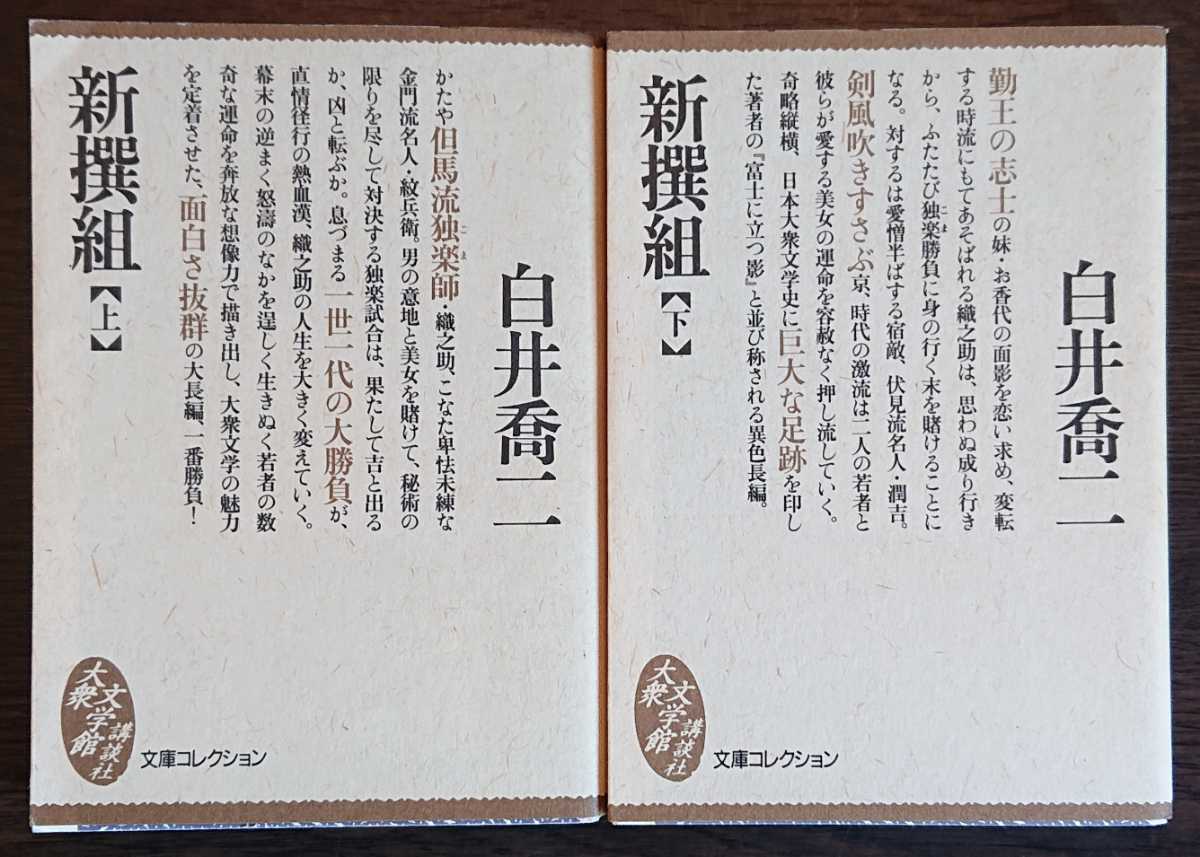 白井喬二
かたや但馬流独楽師・織之助、こなた卑怯未練な
こま
金門流名人・紋兵衛。男の意地と美女を賭けて、秘術の
限りを尽して対決する独楽試合は、果たして吉と出る
か、凶と転ぶか。息づまる一世一代の大勝負が、
直情径行の熱血漢、織之助の人生を大きく変えていく。
幕末の逆まく怒濤のなかを逞しく生きぬく若者の数
奇な運命を奔放な想像力で描き出し、大衆文学の魅力
を定着させた、面白さ抜群の大長編、一番勝負!
新撰組【上】
大衆
文学館
講談社
文庫コレクション
白井喬二
勤王の志士の妹・お香代の面影を恋い求め、変転
する時流にもてあそばれる織之助は、思わぬ成り行き
から、ふたたび独楽勝負に身の行く末を賭けることに
こま
なる。対するは愛憎半ばする宿敵、伏見流名人・潤吉。
剣風吹きすさぶ京、時代の激流は二人の若者と
彼らが愛する美女の運命を容赦なく押し流していく。
奇略縦横、日本大衆文学史に巨大な足跡を印し
た著者の『富士に立つ影』と並び称される異色長編。
新撰組【下】
大衆
文学館
講談社
文庫コレクション